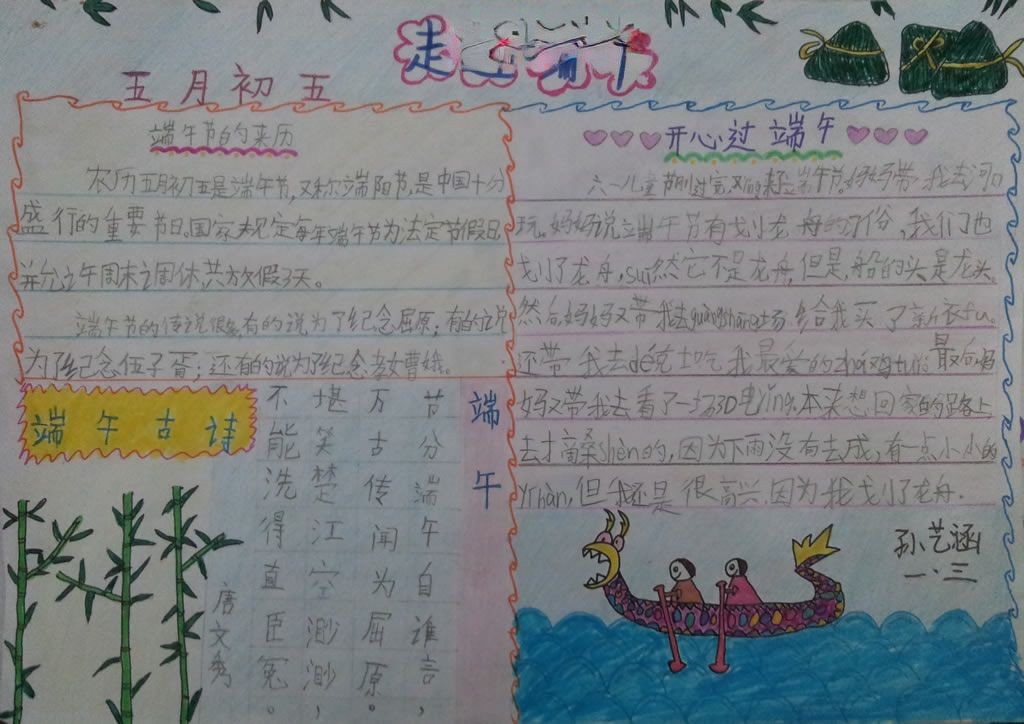 走
五月初五
端午节的来历
农历五月初五是端午节,又称端阳节,是中国十分
盛行的重要节日。国家规定每年端午节为法定节假日
并允之午周末之周休,共放假3天。
端午节的传说很多,有的说为了纪念屈原;有的说
为了纪念伍子胥;还有的说为了纪念孝女曹娥。
端午古诗
端午
唐文秀
节分端午自谁言,
万古传闻为屈原。
堪笑楚江空渺渺,
不能洗得直臣冤。
开心过端午
六一儿童节刚过完,又来端午节,妈妈带我去河口
玩。妈妈说端午节有划龙舟的习俗,我们也
划了龙舟,sui然它不是龙舟,但是,船的头是龙头。
然后妈妈又带我去场给我买了新衣fu。
还带我去dé克士吃我最爱的zhá鸡tuǐ。最后妈
妈又带我去看了一场3D电yǐng。本来想回家的路上
去摘桑shèn的,因为下雨没有去成,有一点小小的
yíhàn,但我还是很高兴因为我划了龙舟.
孙艺涵
一.三